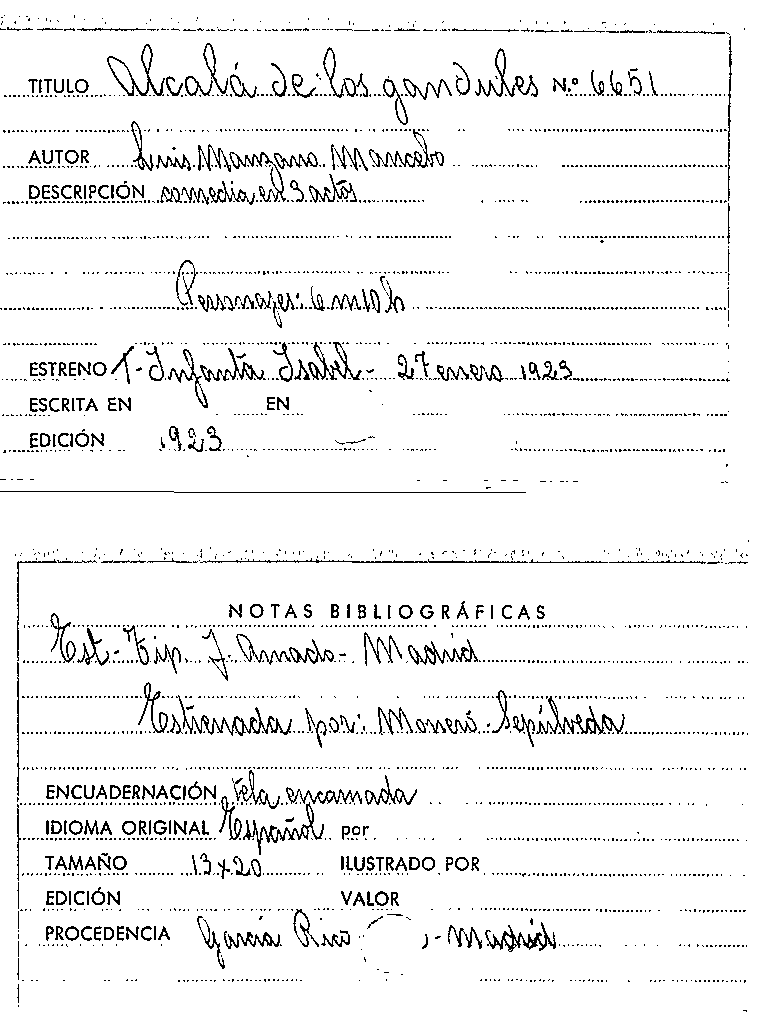 TITULO Alcalá de los gandules N.º 6651
AUTOR Luis Manzano Mancebo
DESCRIPCIÓN comedia en 3 actos
Personajes: 6 m 10 h
ESTRENO T- Infanta Isabel - 27 enero 1923
ESCRITA EN EN
EDICIÓN 1923
NOTAS BIBLIOGRÁFICAS
Est- Tip. J. Amado- Madrid
Estrenada por: Moneró-Sepúlveda
ENCUADERNACIÓN tela encarnada
IDIOMA ORIGINAL Español por
TAMAÑO 13x20 ILUSTRADO POR
EDICIÓN VALOR
PROCEDENCIA García Rico - Madrid